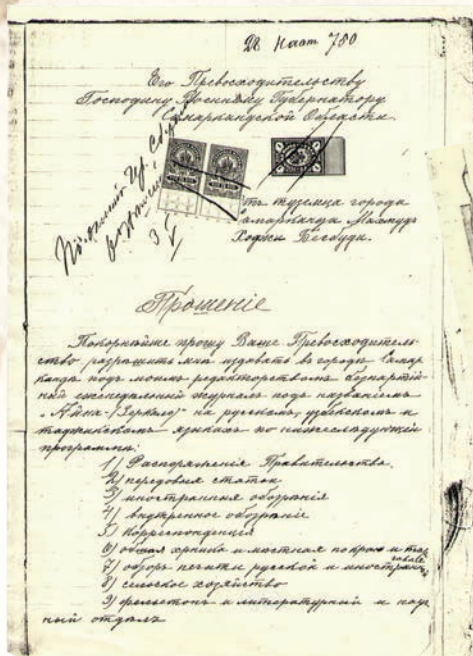 28 Наст 750
Его Превосходительству
Господину Военному Губернатору
Самаркандской Области.
отъ туземца города
Самарканда Махмудъ
Ходжи Бегбуди.
Прошеніе
Покорнѣйше прошу Ваше Превосходитель-
ство разрѣшить мнѣ издавать въ городѣ Самар
кандѣ подъ моимъ редакторствомъ безпартій-
ный еженедѣльный журналъ подъ названіемъ
„Айна-(Зеркало)“ на русскомъ, узбекскомъ и
таджикскомъ языкахъ по нижеслѣдующей
программѣ:
1/ Распоряженія Правительства.
2/ передовыя статьи
3/ иностранныя обозрѣнія
4/ внутреннее обозрѣніе
5/ Корреспонденція
6/ общая хроника и мѣстная по краю и
7/ обзоръ печати русской и иностран
8/ сельское хозяйство
9/ фельетонъ и литературный и науч
ный отдѣлъ